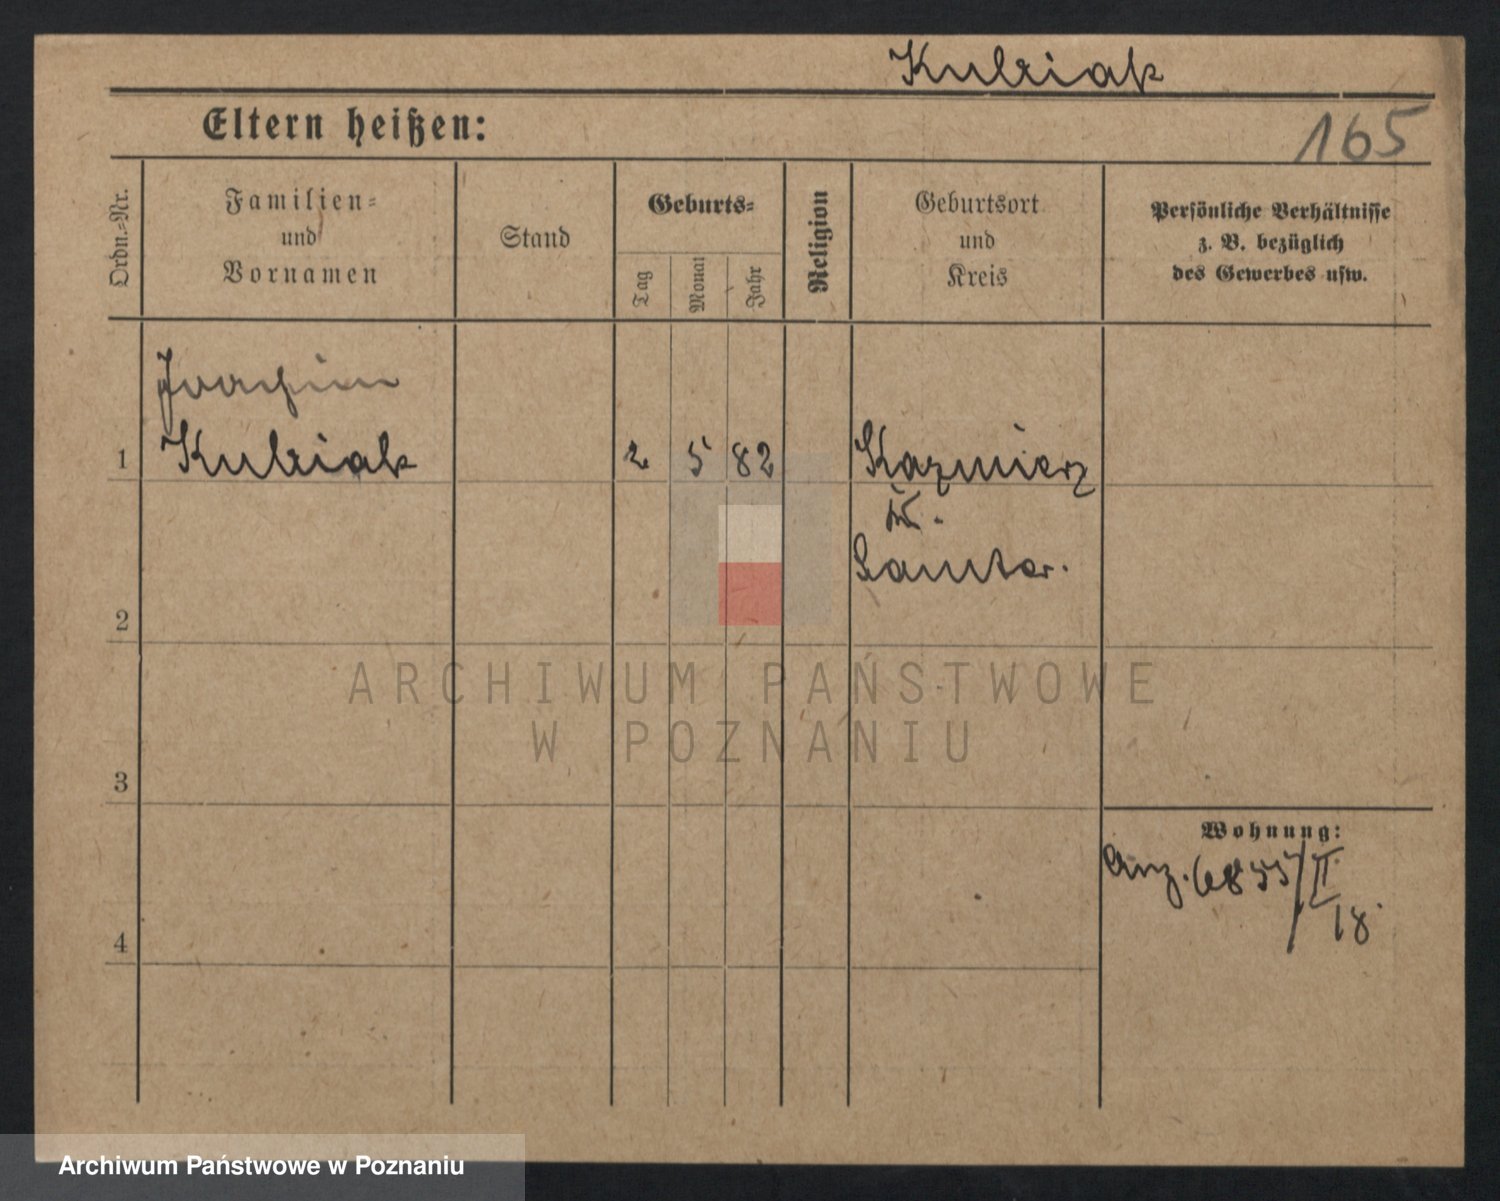 Kubiak
Eltern heißen:
165
Ordn.=Nr.
Familien=
und
Vornamen
Stand
Geburts=
Tag
Monat
Jahr
Religion
Geburtsort
und
Kreis
Persönliche Verhältnisse
z. B. bezüglich
des Gewerbes usw.
Joachim
1 Kubiak 2 5 82 Kazmierz
Kr.
Samter.
2
3
4
Wohnung:
Anz. 6855/II
18.
ARCHIWUM PAŃSTWOWE
W POZNANIU
Archiwum Państwowe w Poznaniu